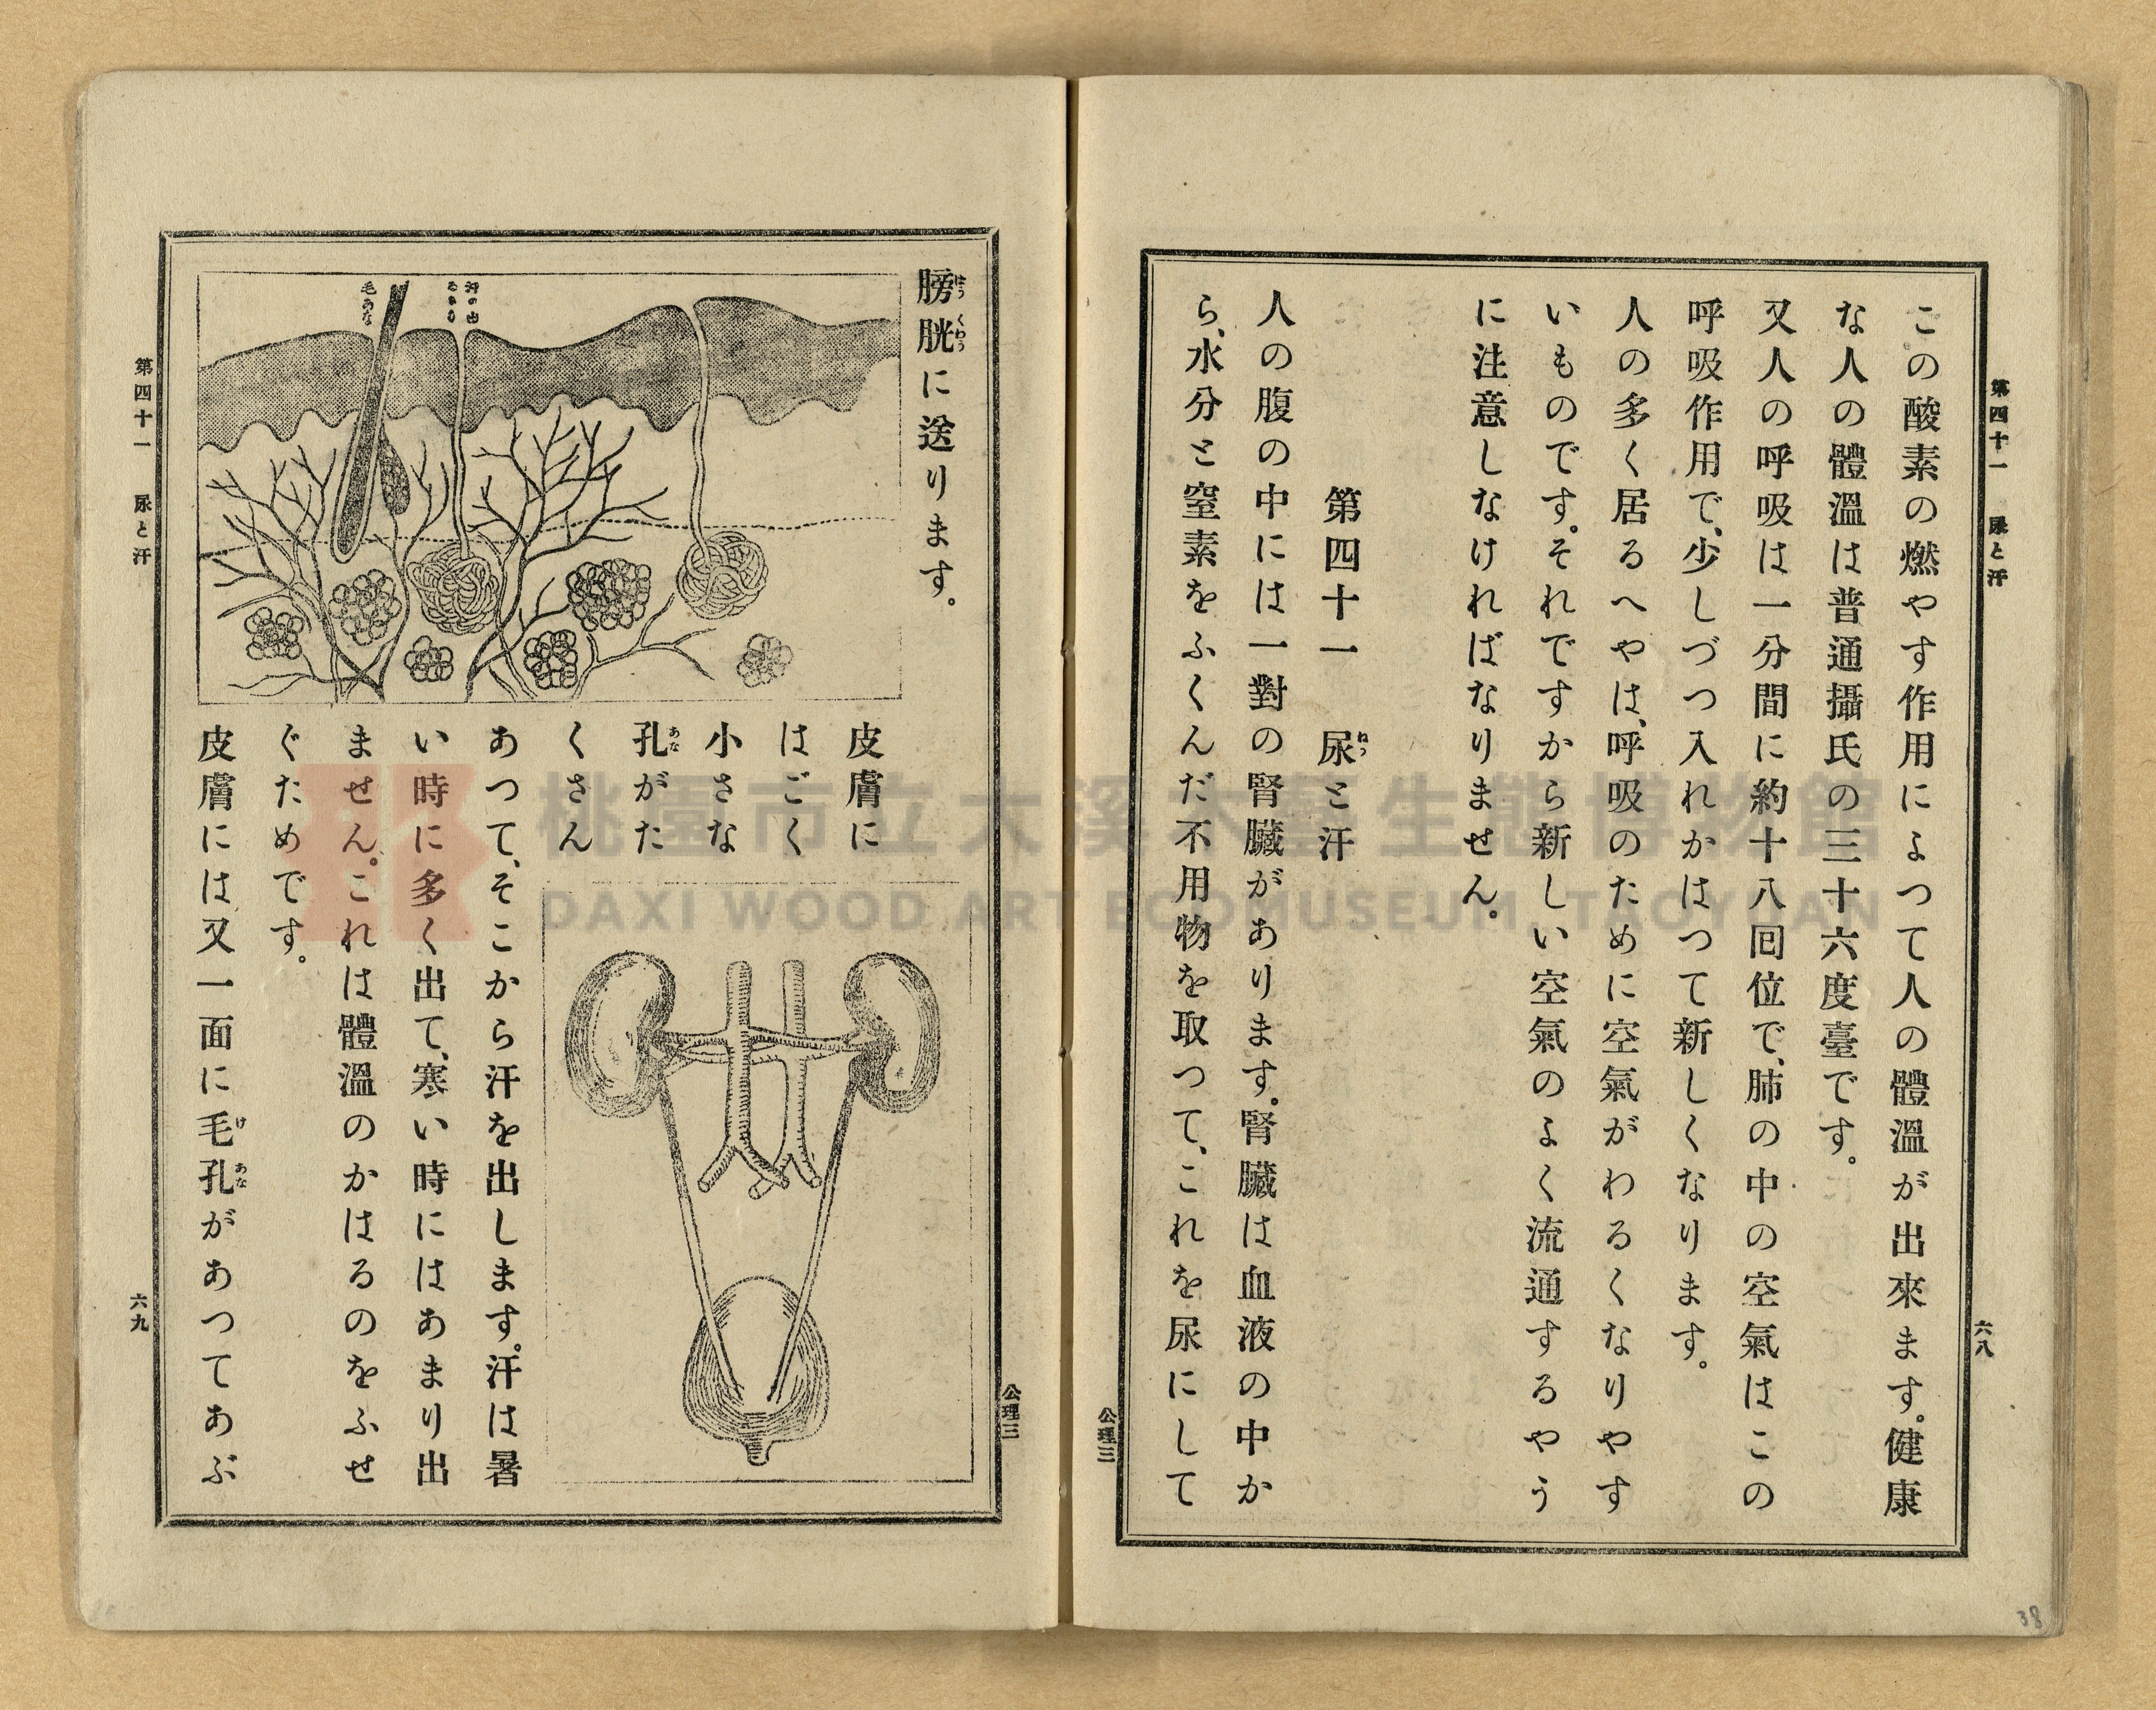 第四十一 尿と汗
六八
この酸素の燃やす作用によつて人の體溫が出來ます。健康
な人の體溫は普通攝氏の三十六度臺です。
又人の呼吸は一分間に約十八囘位で、肺の中の空氣はこの
呼吸作用で、少しづつ入れかはつて新しくなります。
人の多く居るへやは、呼吸のために空氣がわるくなりやす
いものです。それですから新しい空氣のよく流通するやう
に注意しなければなりません。
第四十一 尿と汗
ねう
人の腹の中には一對の腎臟があります。腎臟は血液の中か
ら、水分と窒素をふくんだ不用物を取つて、これを尿にして
公理三
38
公理三
膀胱に送ります。
はう くわう
汗の出
るあな
毛あな
皮膚に
はごく
小さな
孔がた
あな
くさん
あつて、そこから汗を出します。汗は暑
い時に多く出て、寒い時にはあまり出
ません。これは體溫のかはるのをふせ
ぐためです。
皮膚には又一面に毛孔があつてあぶ
け あな
第四十一 尿と汗
六九
桃園市立大溪木藝生態博物館
DAXI WOOD ART ECOMUSEUM, TAOYUAN